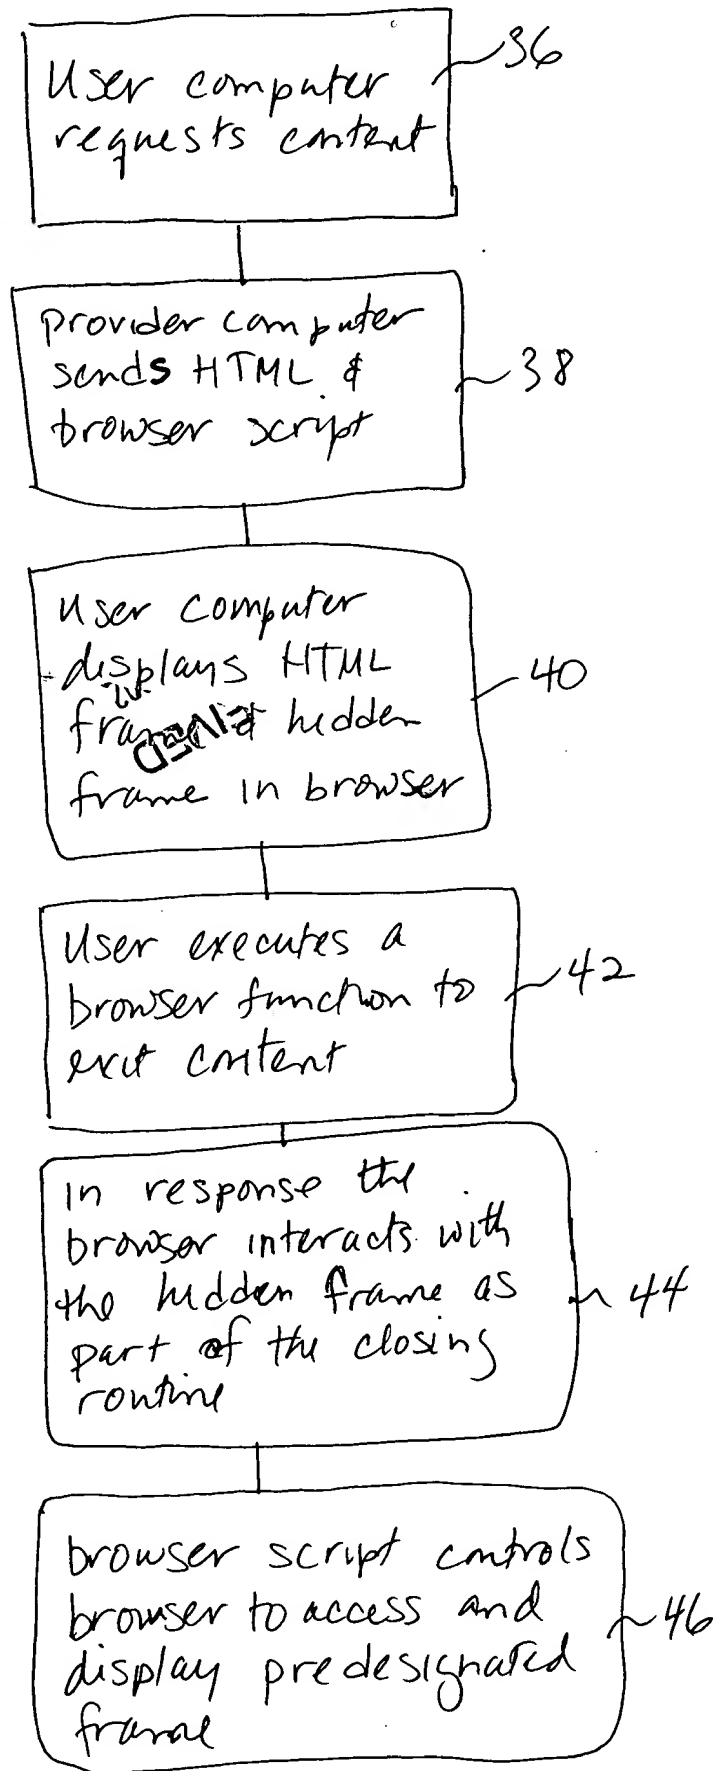 User computer
requests content
36
provider computer
sends HTML &
browser script
38
User computer
displays HTML
hidden
frame in browser
40
User executes a
browser function to
exit content
42
in response the
browser interacts with
the hidden frame as
part of the closing
routine
44
browser script controls
browser to access and
display predesignated
frame
46